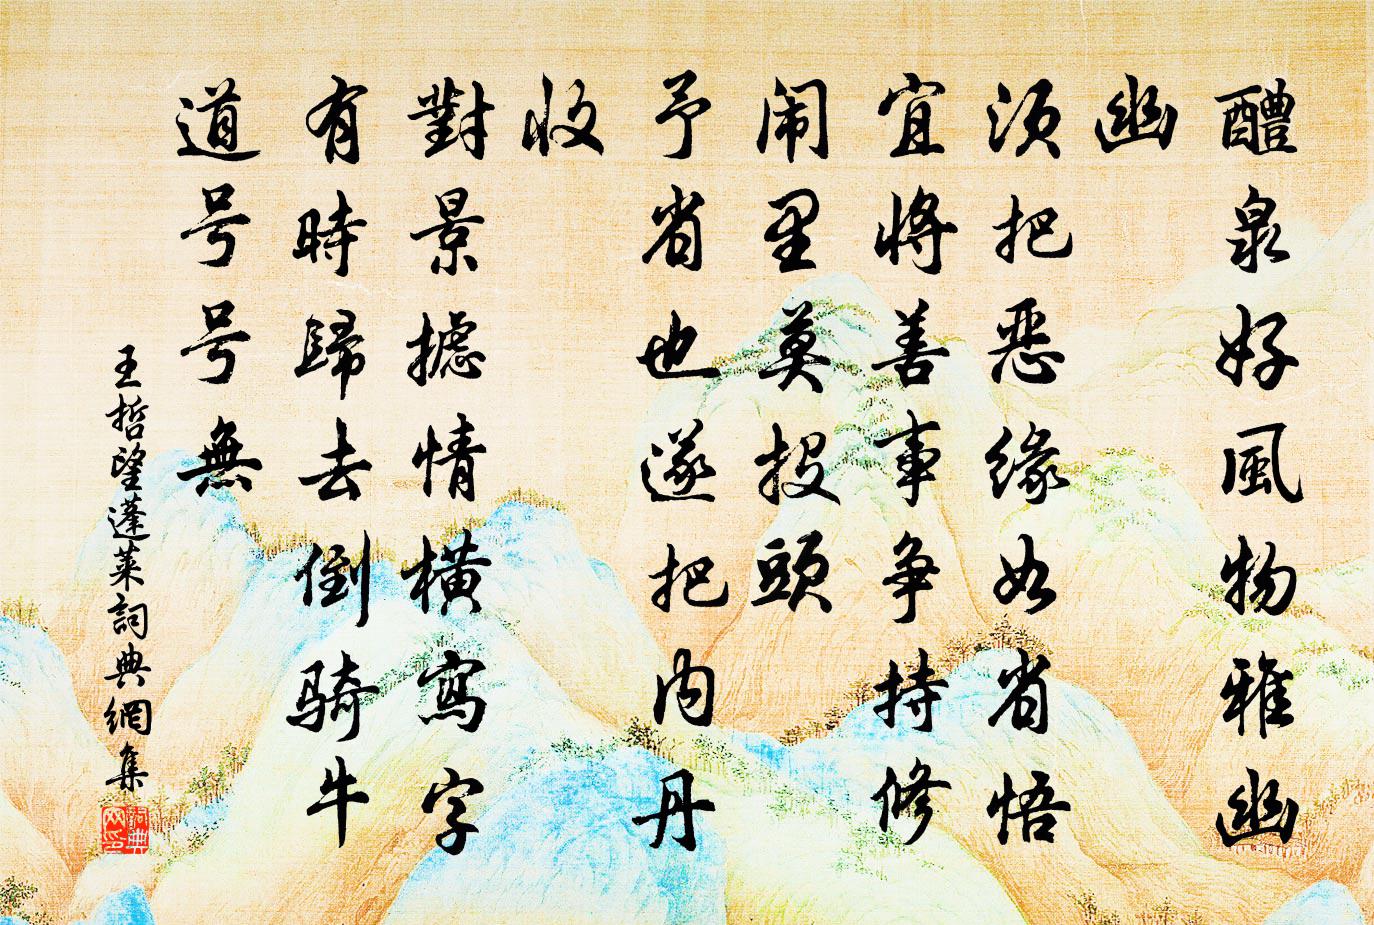 醴泉好風物雅幽
幽
須把惡緣必省悟
宜將善事爭持修
闹里莫投頭
予省也遂把内丹
收
對景摅情横寫字
有時歸去倒骑牛
道号号無
王哲望蓬莱詞典網集
詞典網印